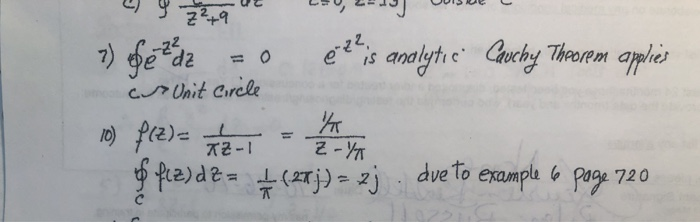 c) ∮ z²+9 dz z=0, z=±3j outside C
7) ∮e^-z² dz = 0 e^-z² is analytic. Cauchy Theorem applies
C → Unit Circle
10) f(z) = 1/(πz-1) = (1/π)/(z-1/π)
∮_C f(z)dz = 1/π (2πj) = 2j. due to example 6 page 720